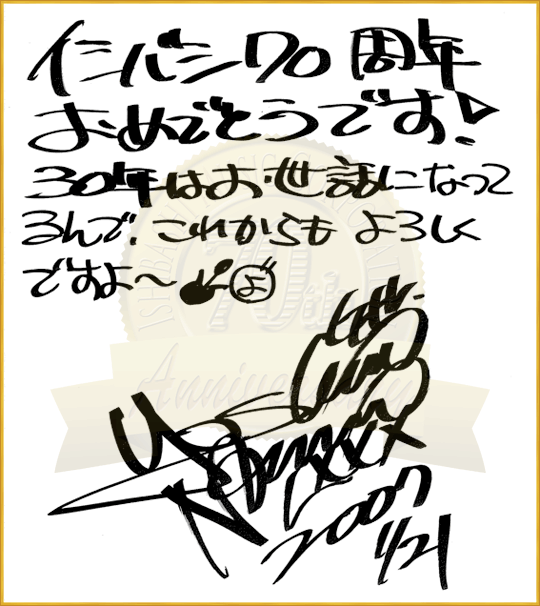 イシバシ70周年
おめでとうです!
30年はお世話になって
るんで、これからも よろしく
ですよ〜 よ
ISHIBASHI
70th
Anniversary
2007
1/21